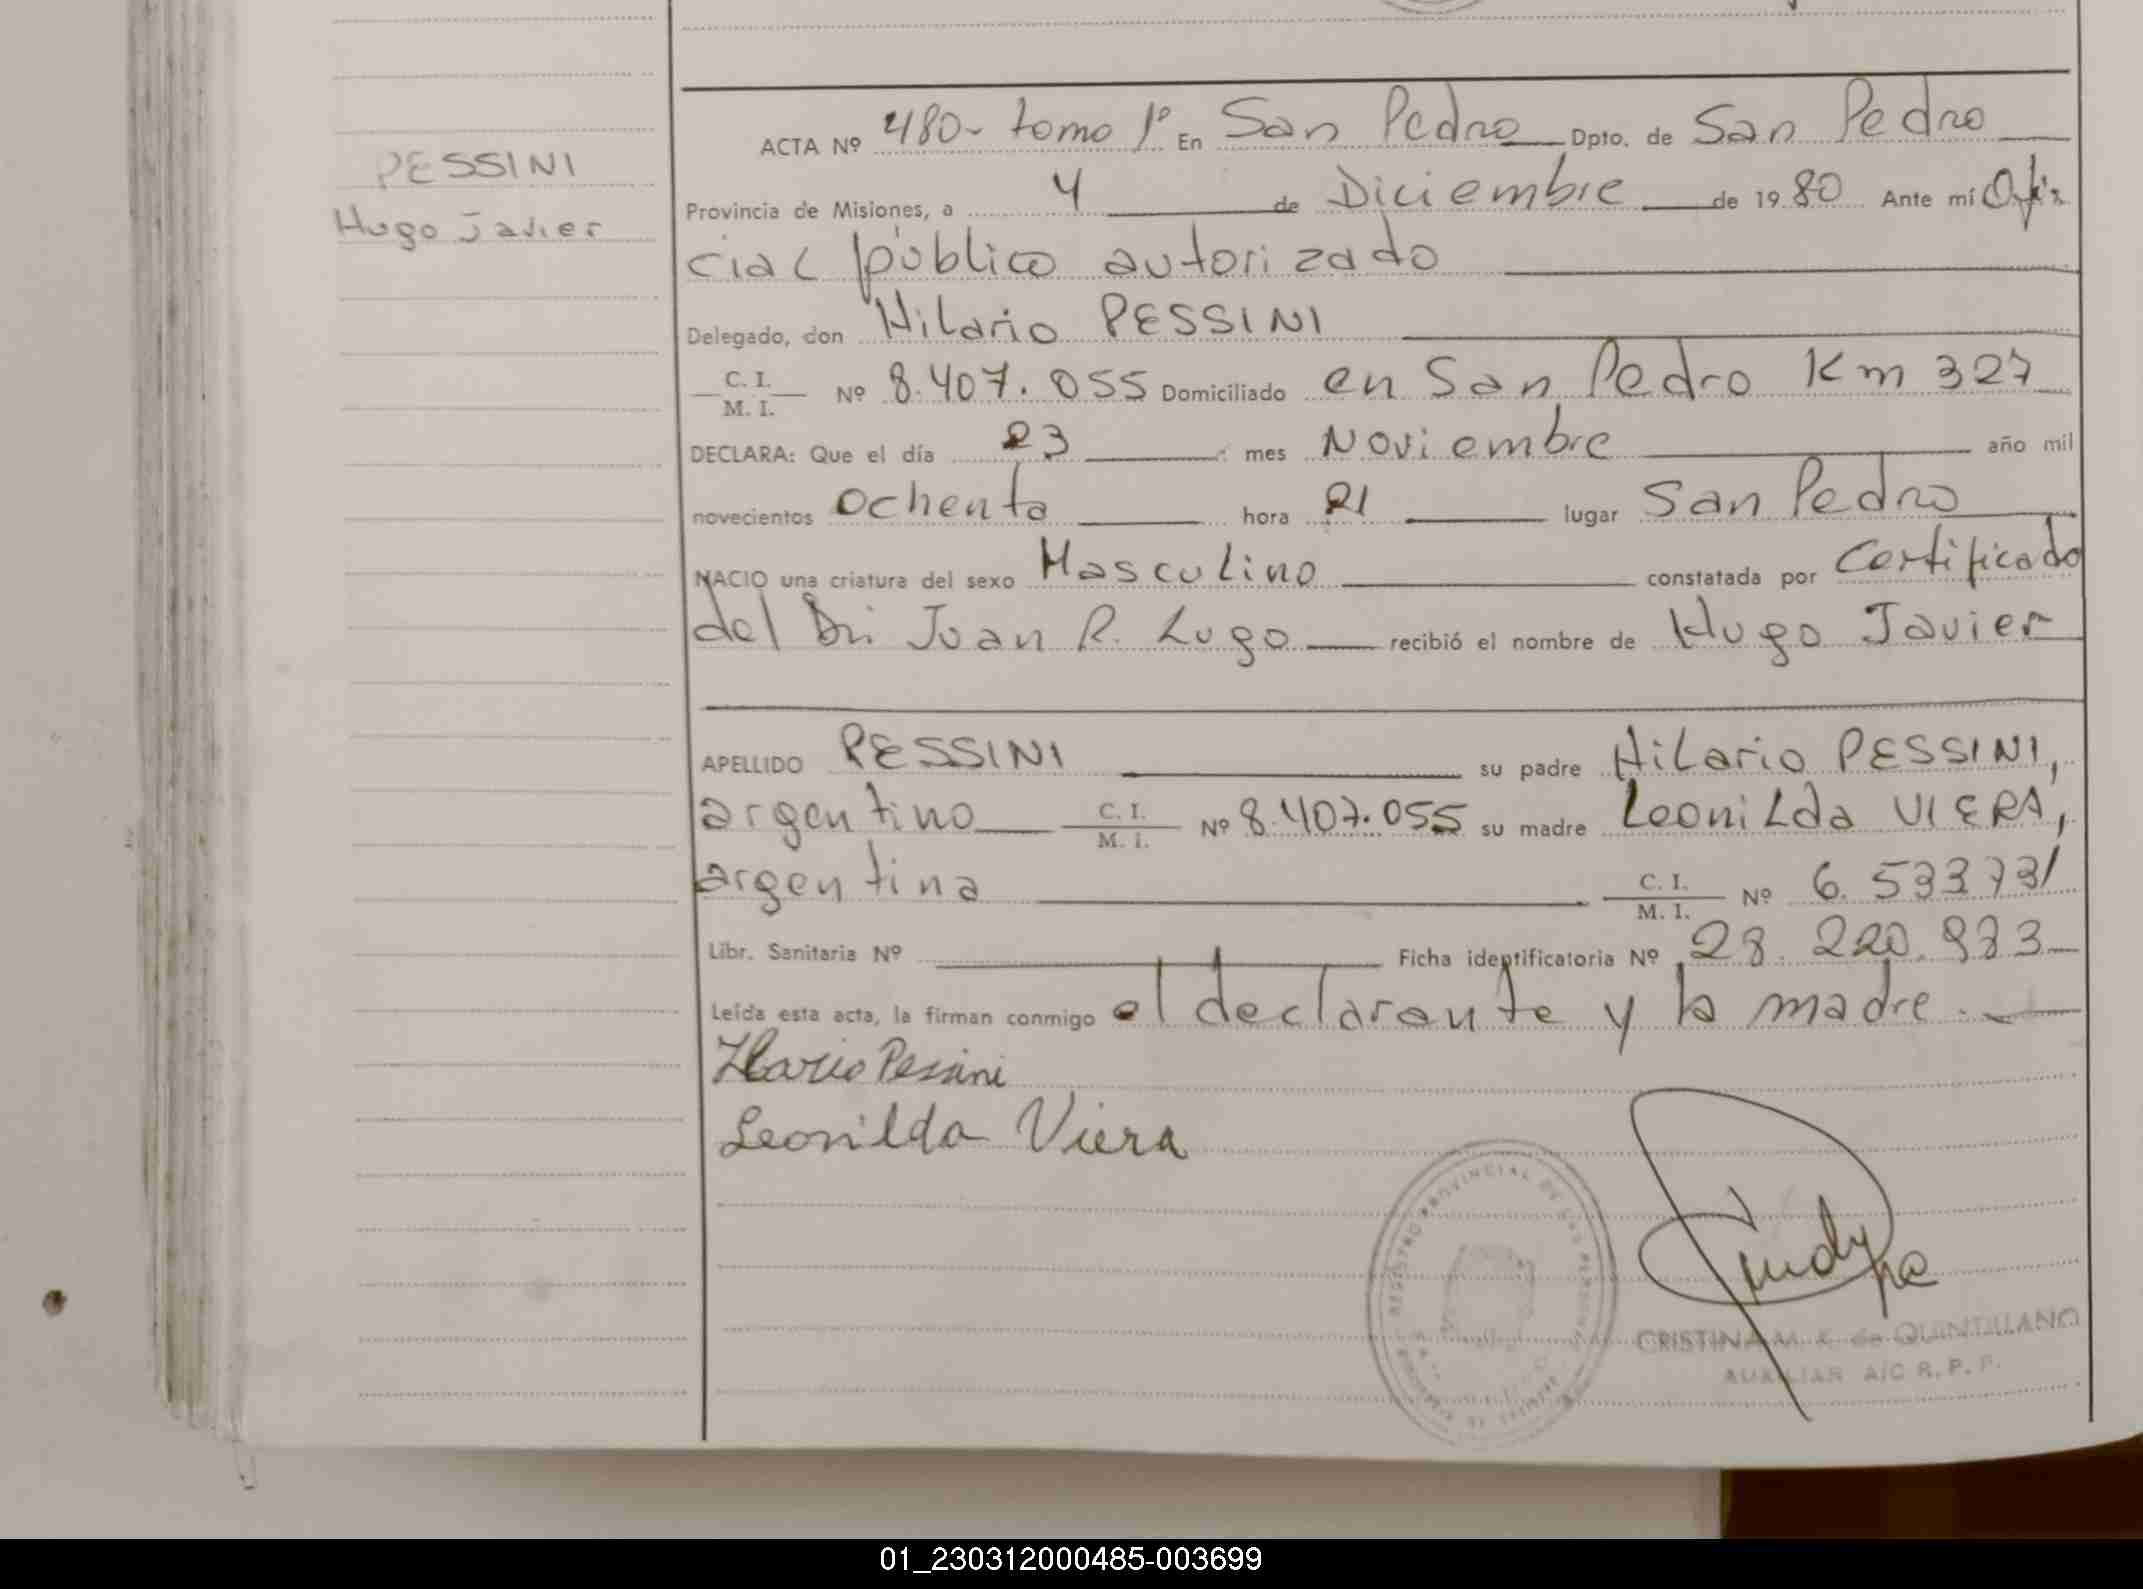 PESSINI
Hugo Javier
ACTA Nº 480- tomo 1º En San Pedro Dpto. de San Pedro
Provincia de Misiones, a 4 de Diciembre de 1980 Ante mí Ofi
cial público autorizado
Delegado, don Hilario PESSINI
C. I.
M. I. Nº 8.407.055 Domiciliado en San Pedro Km 327
DECLARA: Que el día 23 mes Noviembre año mil
novecientos ochenta hora 21 lugar San Pedro
NACIO una criatura del sexo Masculino constatada por Certificado
del Dr. Juan R. Lugo recibió el nombre de Hugo Javier
APELLIDO PESSINI su padre Hilario PESSINI,
argentino C. I.
M. I. Nº 8.407.055 su madre Leonilda VIERA,
argentina C. I.
M. I. Nº 6.533731
Libr. Sanitaria Nº Ficha identificatoria Nº 28.220.983
Leída esta acta, la firman conmigo el declarante y la madre.
Ilario Pessini
Leonilda Viera
REGISTRO PROVINCIAL DE LAS PERSONAS
CRISTINA M. K. de QUINTILLANO
AUXILIAR A/C R. P. P.
01_230312000485-003699